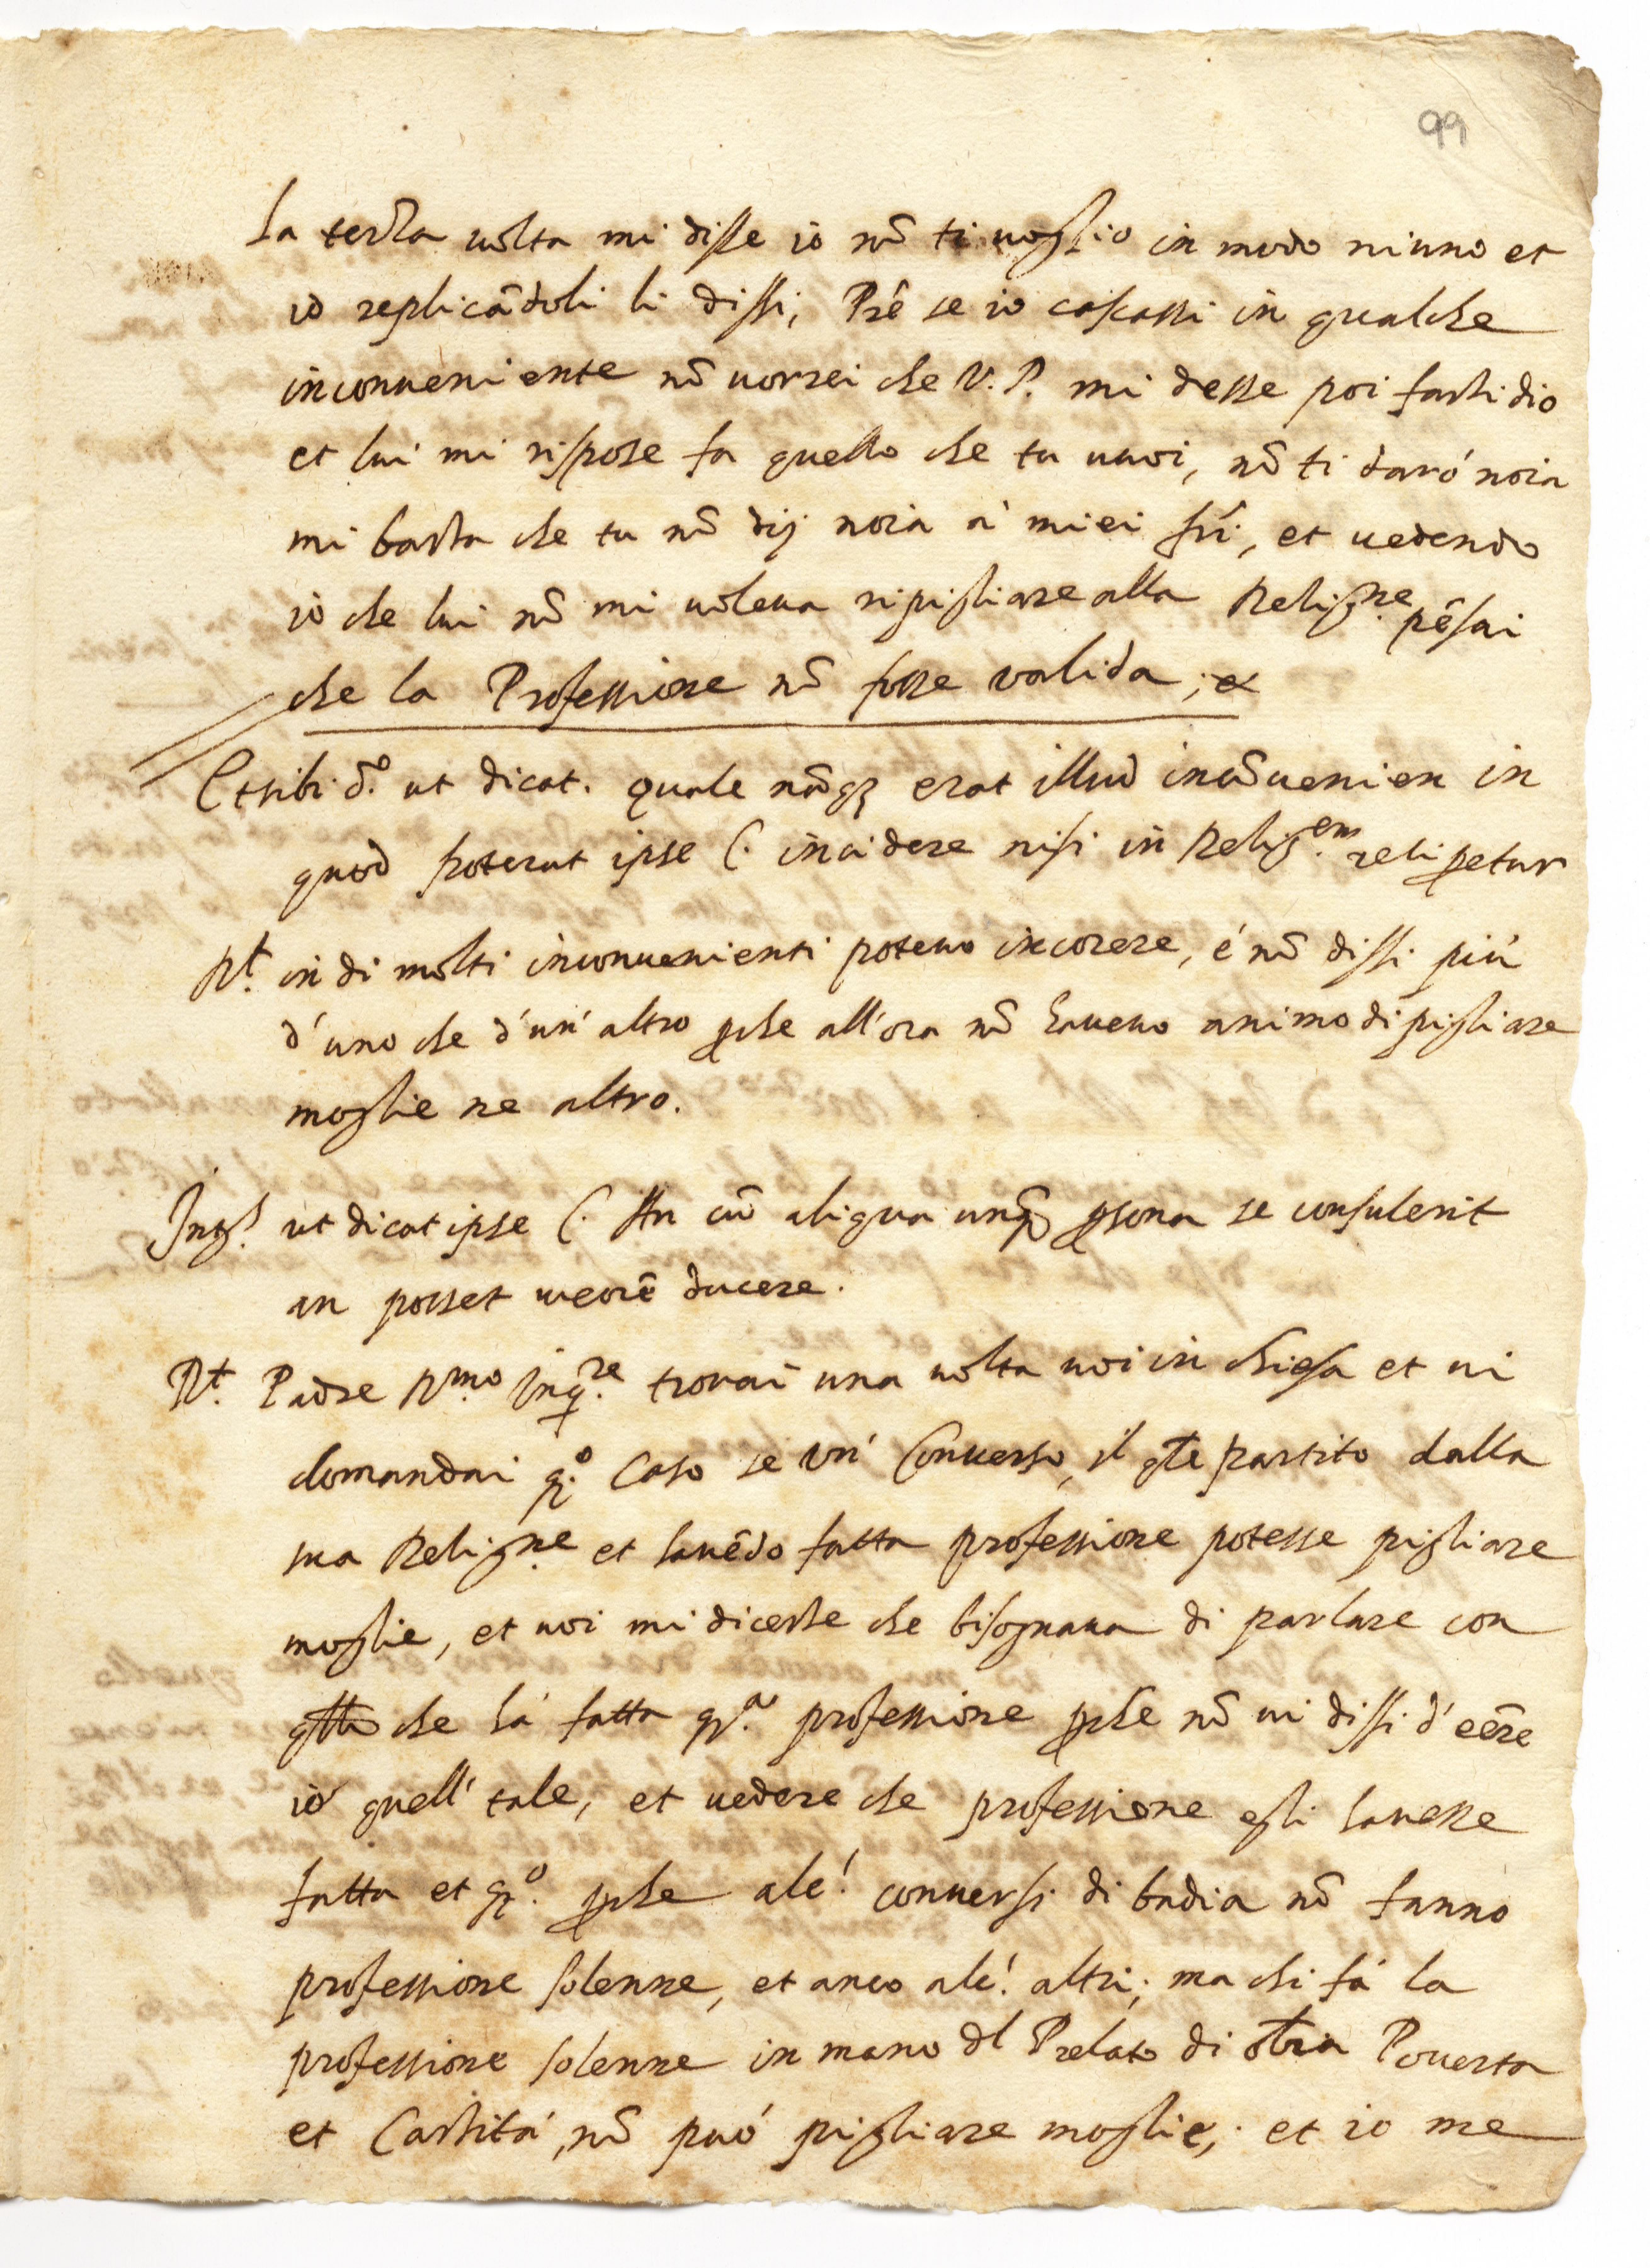 99
La terza uolta mi disse io nõ ti uoglio in modo niuno et
io replicãdoli li dissi, Prẽ se io cascassi in qualche
inconueniente nõ uorrei che V. P. mi desse poi fastidio
et lui mi rispose fa quello che tu uuoi, nõ ti darò noia
mi basta che tu nõ dij noia a' miei frĩ, et uedendo
io che lui nõ mi uoleua ripigliare alla Relig.ne pẽsai
che la Professione nõ fosse valida;
Et sibi d.o ut dicat. quale nãq; erat illud incõueniens in
quod poterat ipse C. incidere nisi in Relig.em reciperetur
Rt. in di molti inconuenienti poteuo incorere, é nõ dissi più
d'uno che d'un'altro perche all'ora nõ haueuo animo di pigliare
moglie ne altro.
Intr. ut dicat ipse C. An cũ aliqua unq; persona se consulerit
an posset uxorẽ ducere.
Rt. Padre R.mo Inq.re trouai una uolta uoi in chiesa et ui
domandai q.o caso se vn' Conuerso, il qle partito dalla
sua Relig.ne et hauẽdo fatta professione potesse pigliare
moglie, et uoi mi diceste che bisognaua di parlare con
qllo che hà fatta q.a professione perche nõ ui dissi d'eẽre
io quell' tale, et uedere che professione egli hauesse
fatta et q.o perche alc.i conuersi di badia nõ fanno
professione solenne, et anco alc.i altri; ma chi fà la
professione solenne in mano dl Prelato di obia Pouerta
et Castità, nõ può pigliare moglie; et io me